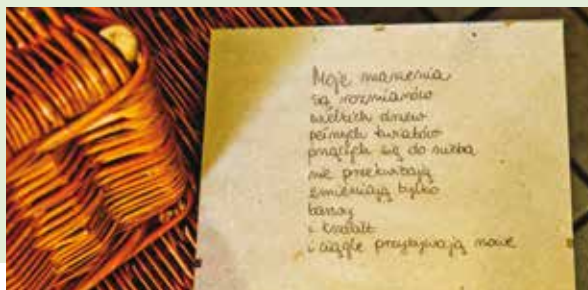 Moje marzenia
są rozmiarów
wielkich drzew
pełnych kwiatów
pnących się do nieba
nie przekwitają
zmieniają tylko
barwy
i kształt
i ciągle przybywają nowe